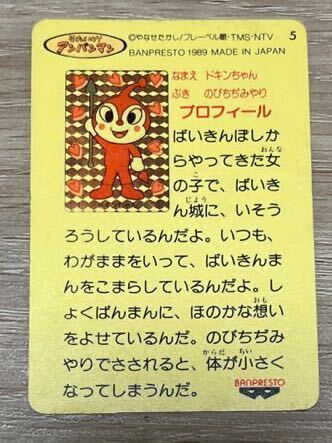 それいけ!
アンパンマン
©やなせたかし/フレーベル館・TMS・NTV 5
BANPRESTO 1989 MADE IN JAPAN
なまえ ドキンちゃん
ぶき のびちぢみやり
プロフィール
ばいきんぼしか
らやってきた女
おんな
の子で、ばいき
こ
ん城に、いそう
じょう
ろうしているんだよ。いつも、
わがままをいって、ばいきんま
んをこまらしているんだよ。し
ょくぱんまんに、ほのかな想い
おも
をよせているんだ。のびちぢみ
やりでさされると、体が小さく
からだ ちい
なってしまうんだ。
BANPRESTO